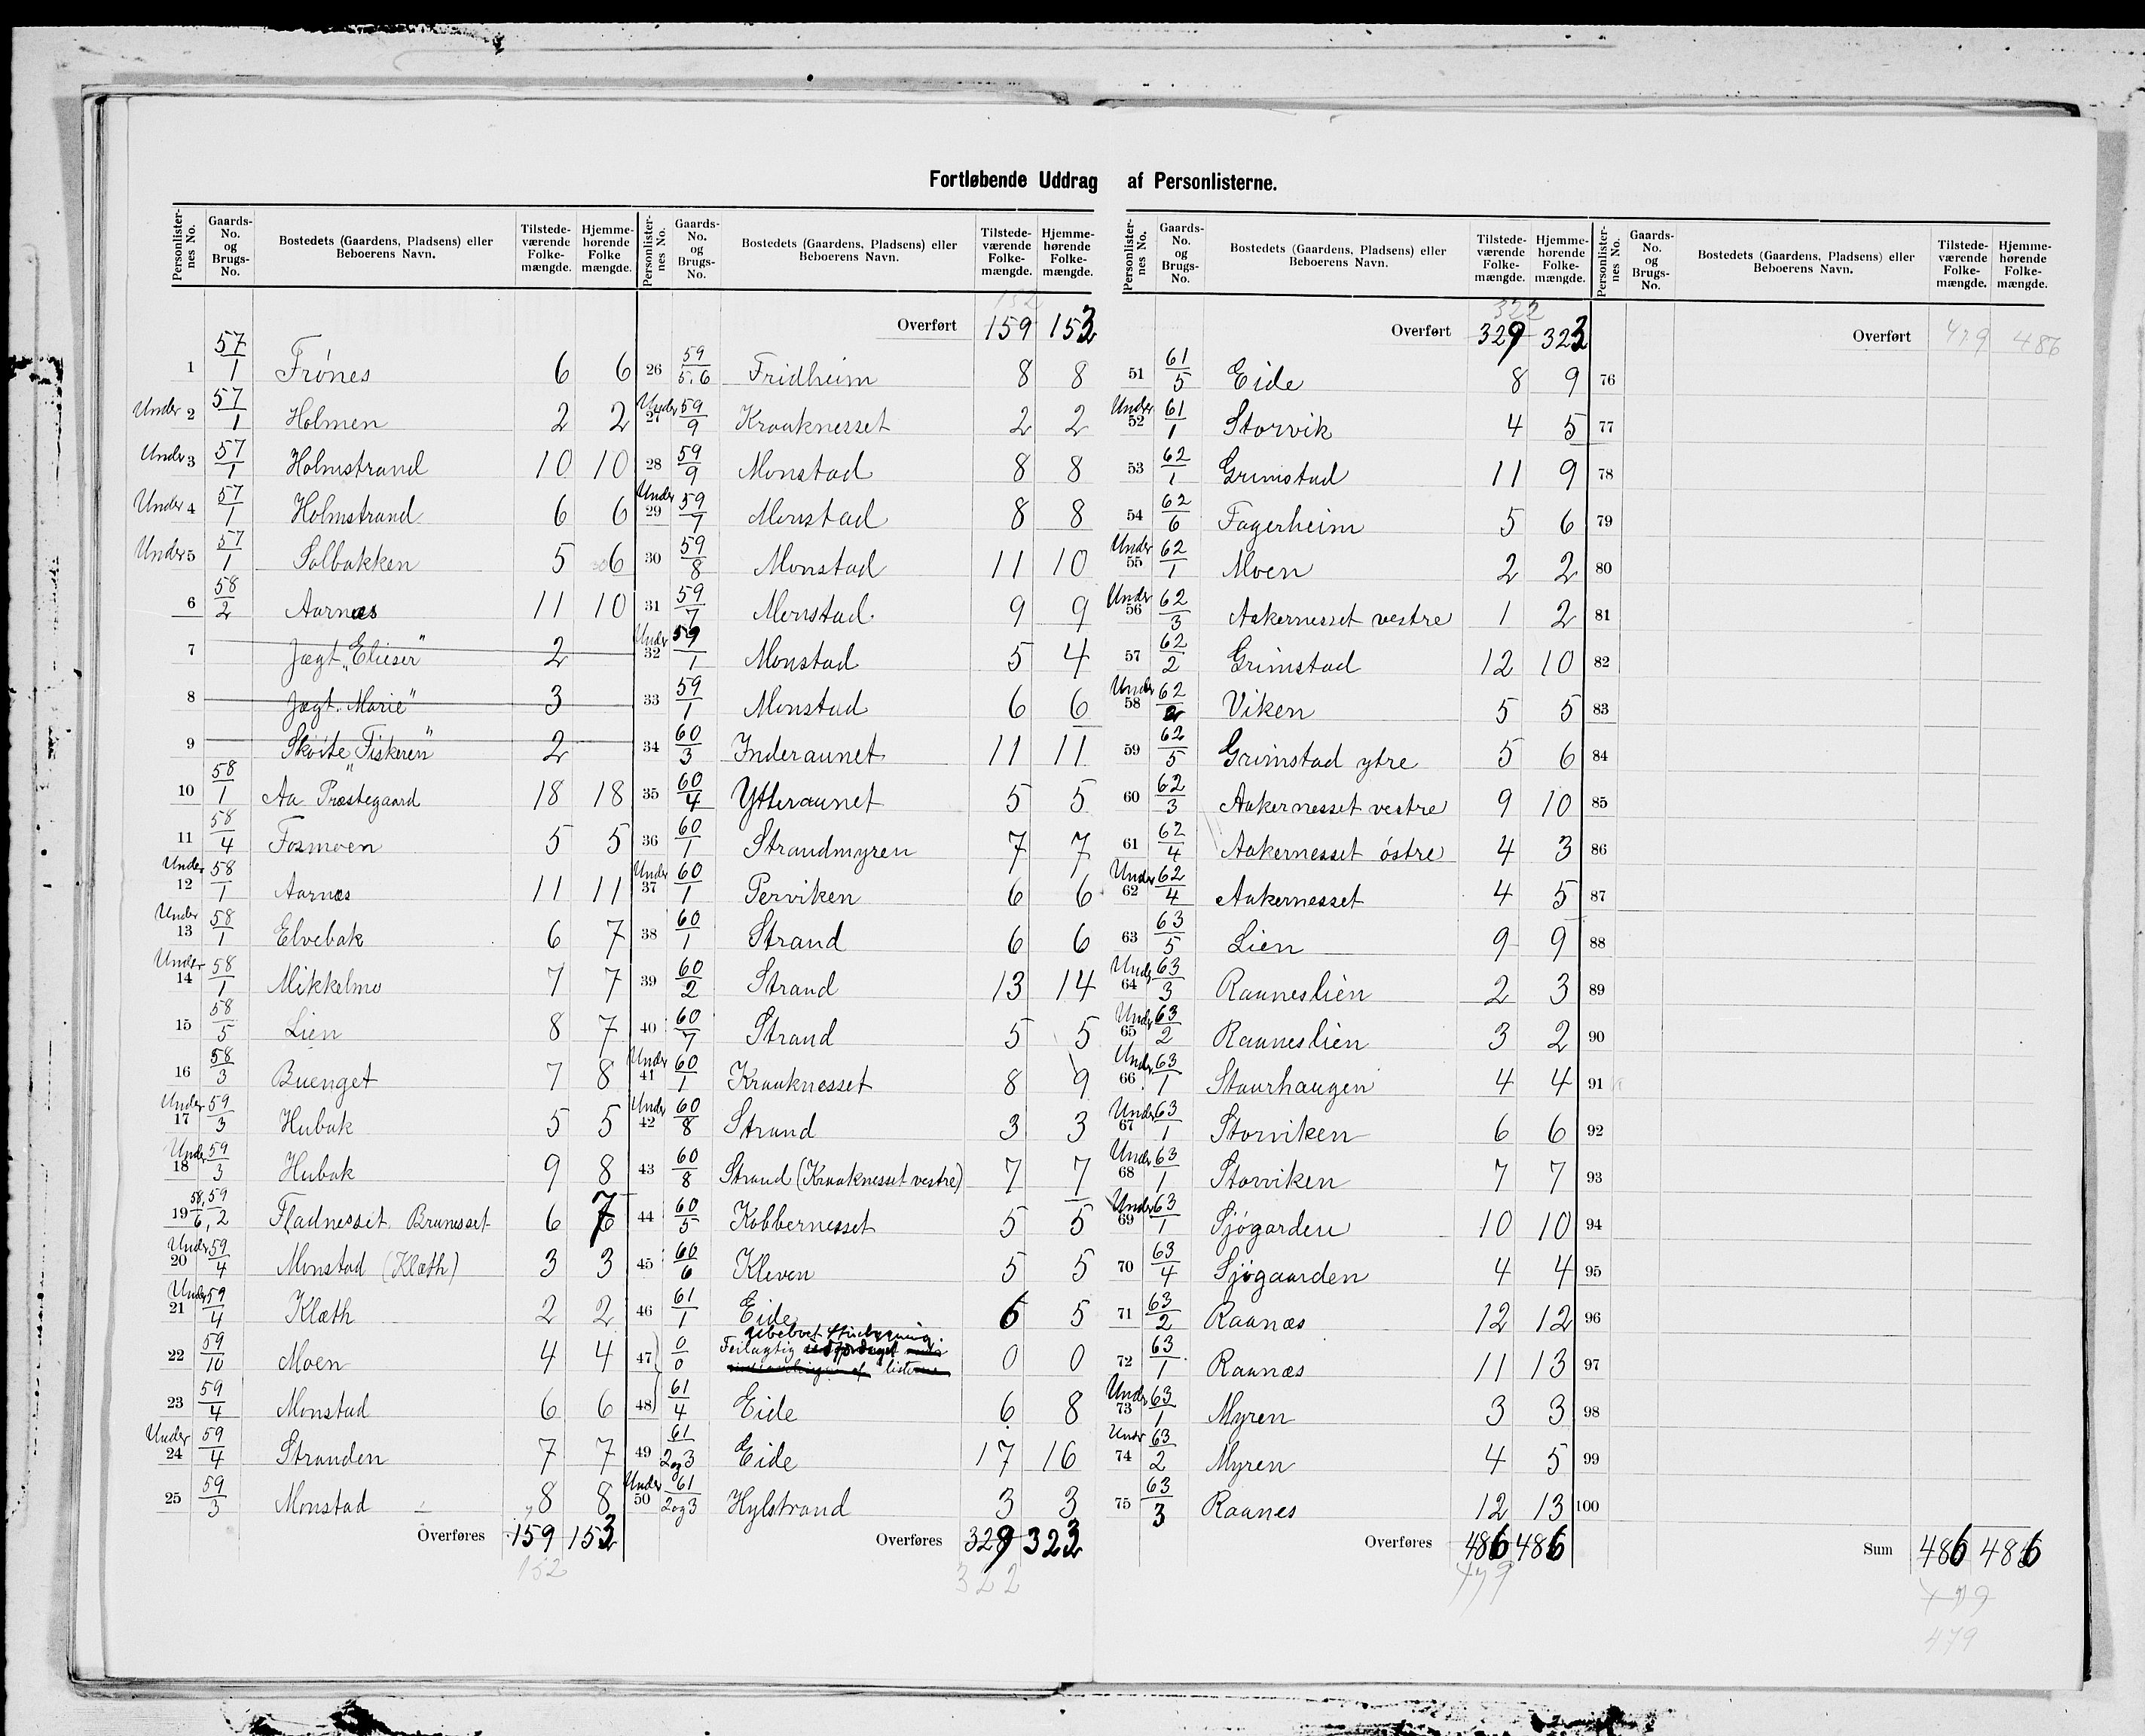 Fortløbende Uddrag af Personlisterne.
Personlisternes No. Gaards-No. og Brugs-No. Bostedets (Gaardens, Pladsens) eller Beboerens Navn. Tilstedeværende Folkemængde. Hjemmehørende Folkemængde.
1 57/1 Frónes 6 6
Under 2 57/1 Holmen 2 2
Under 3 57/1 Holmstrand 10 10
Under 4 57/1 Holmstrand 6 6
Under 5 57/1 Solbakken 5 6
6 58/2 Aarnæs 11 10
7 Jægt „Elieser" 2
8 Jægt „Marie" 3
9 Skóite „Fiskeren" 2
10 58/1 Aa Præstegaard 18 18
11 58/4 Fosmoen 5 5
Under 12 58/1 Aarnæs 11 11
Under 13 58/1 Elvebak 6 7
Under 14 58/1 Mikkelmo 7 7
15 58/5 Lien 8 7
16 58/3 Buenget 7 8
Under 17 59/3 Hubak 5 5
Under 18 59/3 Hubak 9 8
19 58,59/6,2 Fladnesset. Brunesset 6 7
Under 20 59/4 Monstad (Klæth) 3 3
Under 21 59/4 Klæth 2 2
22 59/10 Moen 4 4
23 59/4 Monstad 6 6
Under 24 59/4 Stranden 7 7
25 59/3 Monstad 8 8
Overføres 159 153
152
Personlisternes No. Gaards-No. og Brugs-No. Bostedets (Gaardens, Pladsens) eller Beboerens Navn. Tilstedeværende Folkemængde. Hjemmehørende Folkemængde.
152
Overført 159 153
26 59/5.6 Fridheim 8 8
Under 27 59/9 Kraaknesset 2 2
28 59/9 Monstad 8 8
Under 29 59/7 Monstad 8 8
30 59/8 Monstad 11 10
31 59/7 Monstad 9 9
Under 32 59/1 Monstad 5 4
33 59/1 Monstad 6 6
34 60/3 Inderaunet 11 11
35 60/4 Ytteraunet 5 5
36 60/1 Strandmyren 7 7
Under 37 60/1 Perviken 6 6
38 60/1 Strand 6 6
39 60/2 Strand 13 14
40 60/7 Strand 5 5
Under 41 60/1 Kraaknesset 8 9
Under 42 60/8 Strand 3 3
43 60/8 Strand (Kraaknesset vestre) 7 7
44 60/5 Kobbernesset 5 5
45 60/6 Kleven 5 5
46 61/1 Eide 6 5
47 0/0 Feilagtig 0 0
48 61/4 Eide 6 8
49 61/2og3 Eide 17 16
Under 50 61/2og3 Hylstrand 3 3
Overføres 329 323
322
Personlisternes No. Gaards-No. og Brugs-No. Bostedets (Gaardens, Pladsens) eller Beboerens Navn. Tilstedeværende Folkemængde. Hjemmehørende Folkemængde.
322
Overført 329 323
51 61/5 Eide 8 9
Under 52 61/1 Storvik 4 5
53 62/1 Grimstad 11 9
54 62/6 Fagerheim 5 6
Under 55 62/1 Moen 2 2
Under 56 62/3 Aakernesset vestre 1 2
57 62/2 Grimstad 12 10
Under 58 62/2 Viken 5 5
59 62/5 Grimstad ytre 5 6
60 62/3 Aakernesset vestre 9 10
61 62/4 Aakernesset óstre 4 3
Under 62 62/4 Aakernesset 4 5
63 63/5 Lien 9 9
Under 64 63/3 Raaneslien 2 3
Under 65 63/2 Raaneslien 3 2
Under 66 63/1 Staurhaugen 4 4
Under 67 63/1 Storviken 6 6
Under 68 63/1 Storviken 7 7
Under 69 63/1 Sjógarden 10 10
70 63/4 Sjógaarden 4 4
71 63/2 Raanæs 12 12
72 63/1 Raanæs 11 13
Under 73 63/1 Myren 3 3
Under 74 63/2 Myren 4 5
75 63/3 Raanes 12 13
Overføres 486 486
479
Personlisternes No. Gaards-No. og Brugs-No. Bostedets (Gaardens, Pladsens) eller Beboerens Navn. Tilstedeværende Folkemængde. Hjemmehørende Folkemængde.
Overført 479 486
76
77
78
79
80
81
82
83
84
85
86
87
88
89
90
91
92
93
94
95
96
97
98
99
100
Sum 486 486
479
479